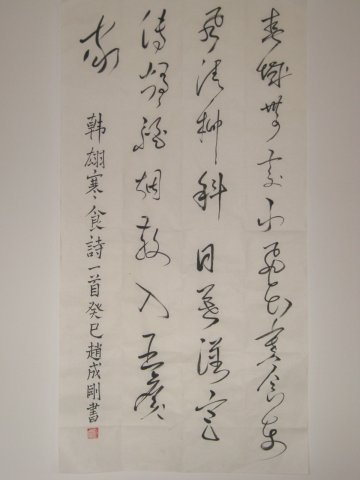 春城無處不飛花寒食东
風御柳斜日暮漢宮
傳蠟燭輕烟散入五侯
家
韩翃寒食詩一首癸巳趙成剛書